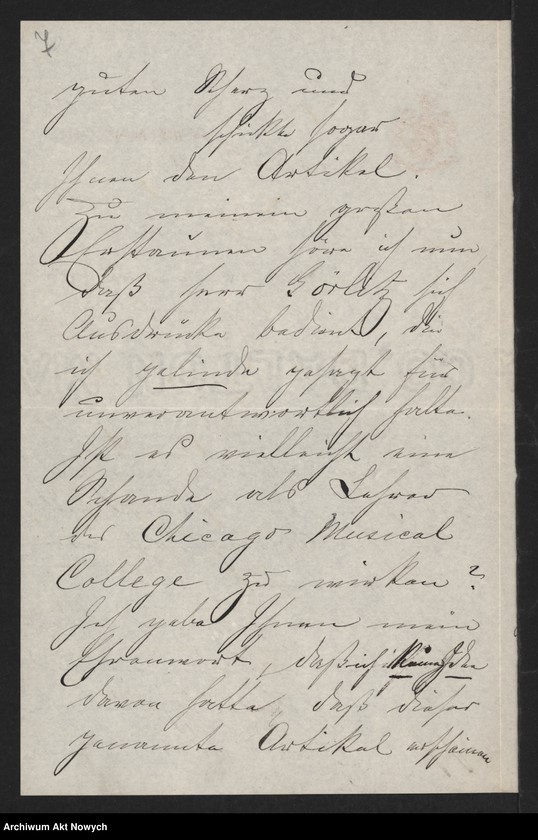 7
guten Scherz und
schickte sogar
Ihnen den Artikel.
Zu meinem großen
Erstaunen höre ich nun,
daß Herr Görlitz sich
Ausdrücke bedient, die
ich gelinde gesagt für
unverantwortlich halte.
Ist es vielleicht eine
Schande als Lehrer
des Chicago Musical
College zu wirken?
Ich gebe Ihnen mein
Ehrenwort, daß ich keine Idee
davon hatte, daß dieser
genannte Artikel erscheinen
Archiwum Akt Nowych